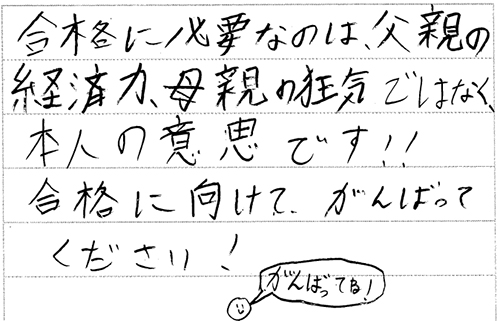 合格に必要なのは、父親の
経済力、母親の狂気ではなく、
本人の意思です!!
合格に向けて、がんばって
ください!
がんばってね!